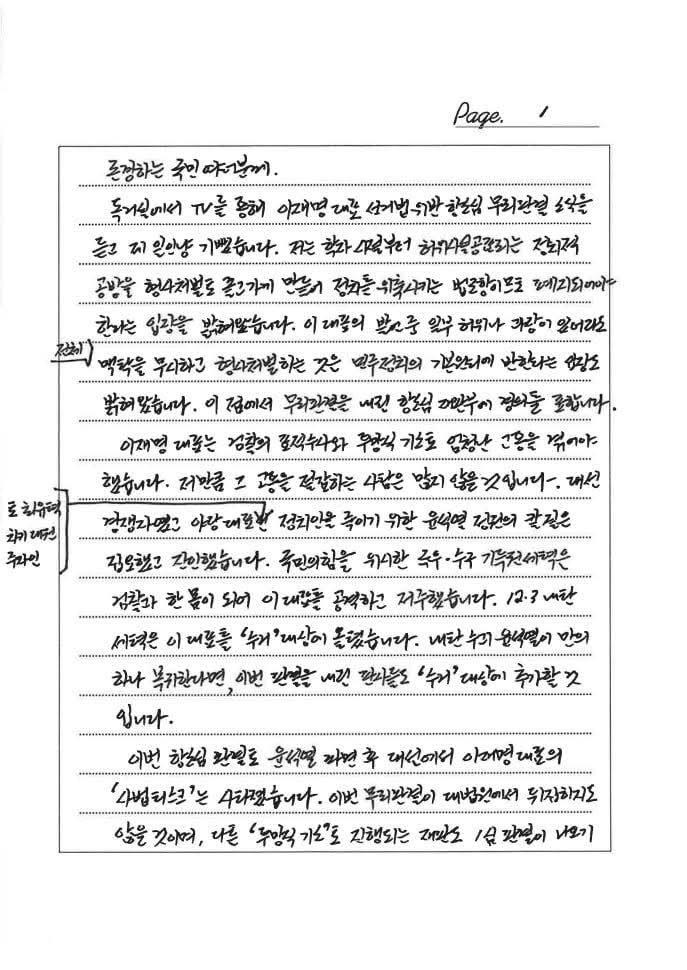 Page. 1
존경하는 국민 여러분께.
독거실에서 TV를 통해 이재명 대표 선거법 위반 항소심 무죄판결 소식을
듣고 제 일인양 기뻤습니다. 저는 학자 시절부터 허위사실공표라는 정치적
공방을 형사처벌로 끌고가게 만들어 정치를 위축시키는 법조항이므로 폐지되어야
한다는 입장을 밝혀왔습니다. 이 대표의 발언 중 일부 허위나 과장이 있더라도
전체
맥락을 무시하고 형사처벌하는 것은 민주정치의 기본원리에 반한다는 입장도
밝혀왔습니다. 이 점에서 무죄판결을 내린 항소심 재판부에 경의를 표합니다.
이재명 대표는 검찰의 표적수사와 투망식 기소로 엄청난 고통을 겪어야
했습니다. 저만큼 그 고통을 절감하는 사람은 많지 않을 것입니다. 대선
경쟁자였고 야당 대표인 정치인을 죽이기 위한 윤석열 정권의 칼질은
로 최유력
차기 대권
주자인
집요했고 잔인했습니다. 국민의힘을 위시한 극우·수구 기득권세력은
검찰과 한 몸이 되어 이 대표를 공격하고 저주했습니다. 12.3 내란
세력은 이 대표를 '수거' 대상에 올렸습니다. 내란 수괴 윤석열이 만의
하나 복귀한다면, 이번 판결을 내린 판사들도 '수거' 대상에 추가할 것
입니다.
이번 항소심 판결로 윤석열 파면 후 대선에서 이재명 대표의
'사법리스크'는 사라졌습니다. 이번 무죄판결이 대법원에서 뒤집히지도
않을 것이며, 다른 '투망식 기소'로 진행되는 재판도 1심 판결이 나오기